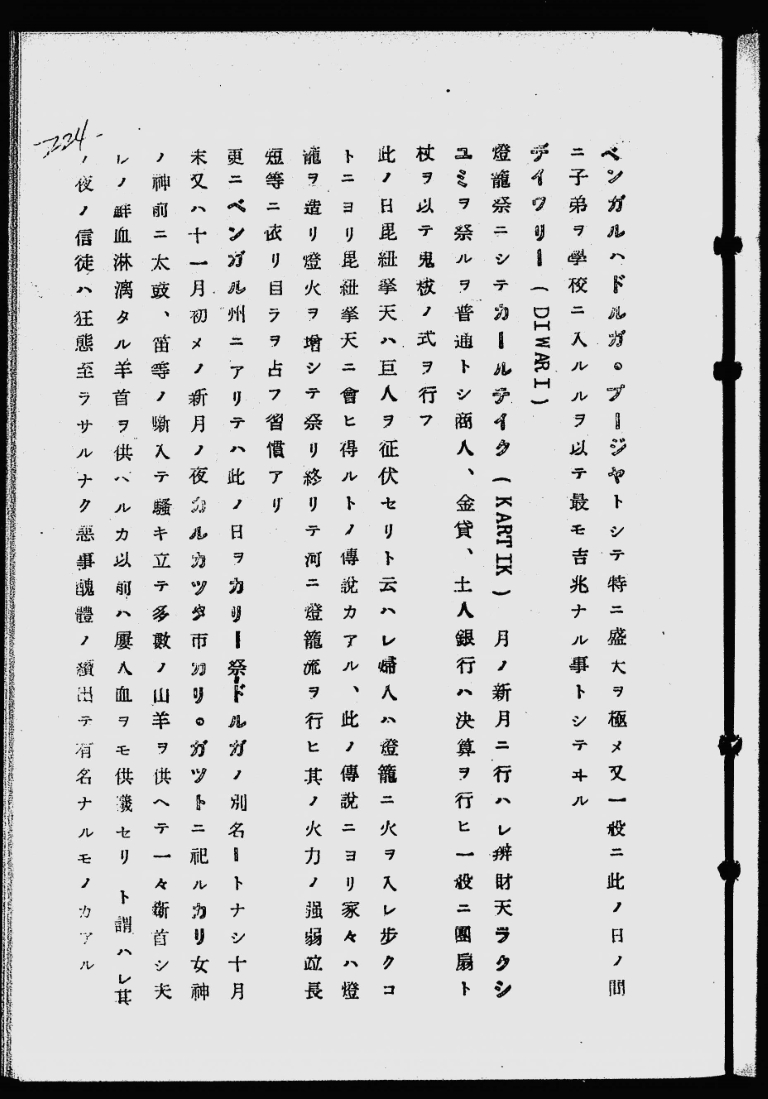 ベンガルハドルガ。プージヤトシテ特ニ盛大ヲ極メ又一般ニ此ノ日ノ間
ニ子弟ヲ學校ニ入ルルヲ以テ最モ吉兆ナル事トシテヰル
デイワリー(DIWARI)
燈籠祭ニシテカールテイク(KARTIK)月ノ新月ニ行ハレ辨財天ラクシ
ユミヲ祭ルヲ普通トシ商人、金貸、土人銀行ハ決算ヲ行ヒ一般ニ團扇ト
杖ヲ以テ鬼祓ノ式ヲ行フ
此ノ日毘紐拏天ハ巨人ヲ征伏セリト云ハレ婦人ハ燈籠ニ火ヲ入レ步クコ
トニヨリ毘紐拏天ニ會ヒ得ルトノ傳說カアル、此ノ傳說ニヨリ家々ハ燈
籠ヲ造リ燈火ヲ增シテ祭リ終リテ河ニ燈籠流ヲ行ヒ其ノ火力ノ强弱竝長
短等ニ依リ目ラヲ占フ習慣アリ
更ニベンガル州ニアリテハ此ノ日ヲカリー祭ードルガノ別名ートナシ十月
末又ハ十一月初メノ新月ノ夜カルカツタ市カリ。ガツトニ祀ルカリ女神
ノ神前ニ太鼓、笛等ノ囃入テ騷キ立テ多數ノ山羊ヲ供ヘテ一々斬首シ夫
レノ鮮血淋漓タル羊首ヲ供ヘルカ以前ハ屢人血ヲモ供犧セリト謂ハレ其
ノ夜ノ信徒ハ狂態至ラサルナク惡事醜體ノ續出テ有名ナルモノカアル
224-